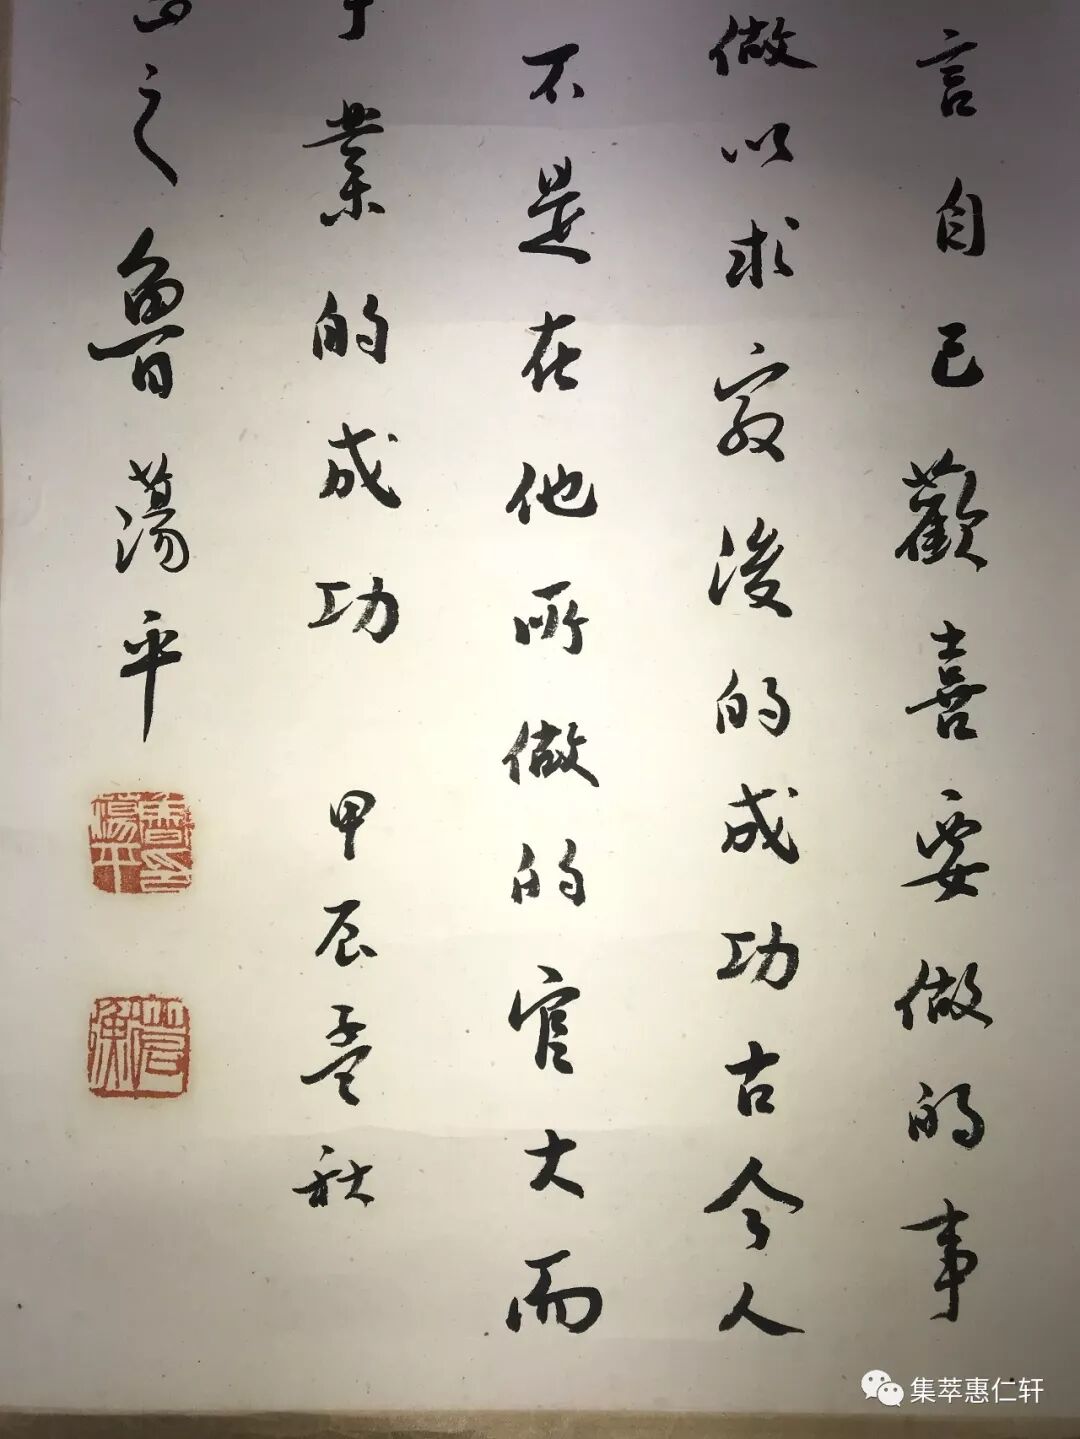 言自己歡喜要做的事
做以求最後的成功古今人
不是在他所做的官大而
業的成功 甲辰孟秋
之魯蕩平
魯蕩平印
集萃惠仁轩